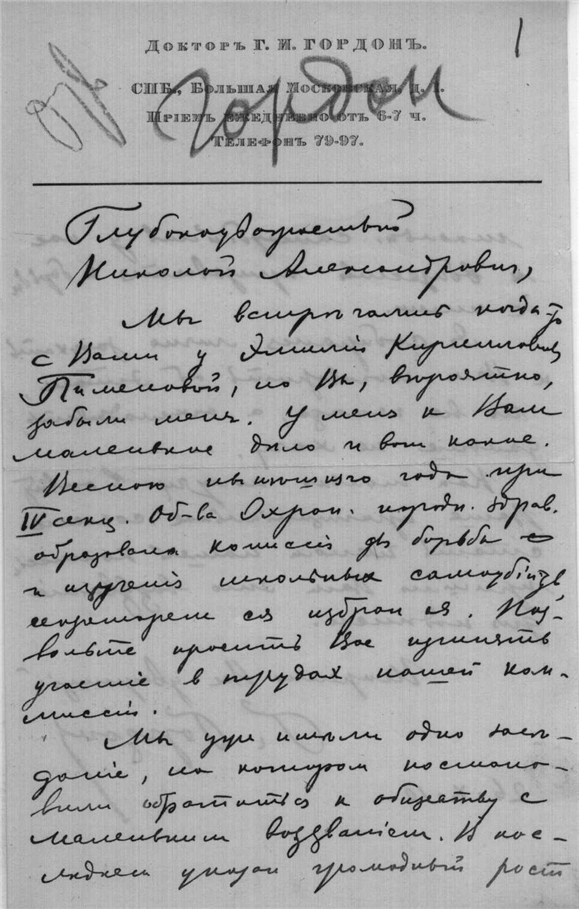 1
Докторъ Г. И. ГОРДОНЪ.
СПБ., Большая Московская, д.
Пріемъ ежедневно отъ 6-7 ч.
Телефонъ 79-97.
Гордон
Глубокоуважаемый
Николай Александрович,
Мы встрѣчались когда-то
с Вами у Эмиліи Кирилловны
Пименовой, но Вы, вѣроятно,
забыли меня. У меня к Вам
маленькое дѣло и вот какое.
Весною нынѣшнего года при
IV секц. Об-ва Охран. народн. здрав.
образована комиссія для борьбы с
и изученія школьных самоубійств,
секретарем ея избран я. Поз-
вольте просить Вас принять
участіе в трудах нашей ком-
миссіи.
Мы уже имѣли одно засѣ-
даніе, на котором постано-
вили обратиться к обществу с
маленьким воззваніем. В пос-
лѣднем указан громадный рост